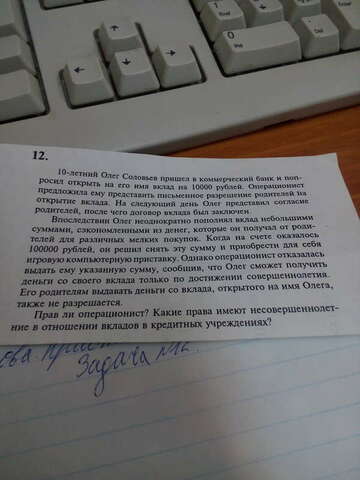 0
Ins
Del
12.
10-летний Олег Соловьев пришел в коммерческий банк и поп-
росил открыть на его имя вклад на 10000 рублей. Операционист
предложила ему представить письменное разрешение родителей на
открытие вклада. На следующий день Олег представил согласие
родителей, после чего договор вклада был заключен.
Впоследствии Олег неоднократно пополнял вклад небольшими
суммами, сэкономленными из денег, которые он получал от роди-
телей для различных мелких покупок. Когда на счете оказалось
100000 рублей, он решил снять эту сумму и приобрести для себя
игровую компьютерную приставку. Однако операционист отказалась
выдать ему указанную сумму, сообщив, что Олег сможет получить
деньги со своего вклада только по достижении совершеннолетия.
Его родителям выдавать деньги со вклада, открытого на имя Олега,
также не разрешается.
Прав ли операционист? Какие права имеют несовершеннолет-
ние в отношении вкладов в кредитных учреждениях?
Задача №12.